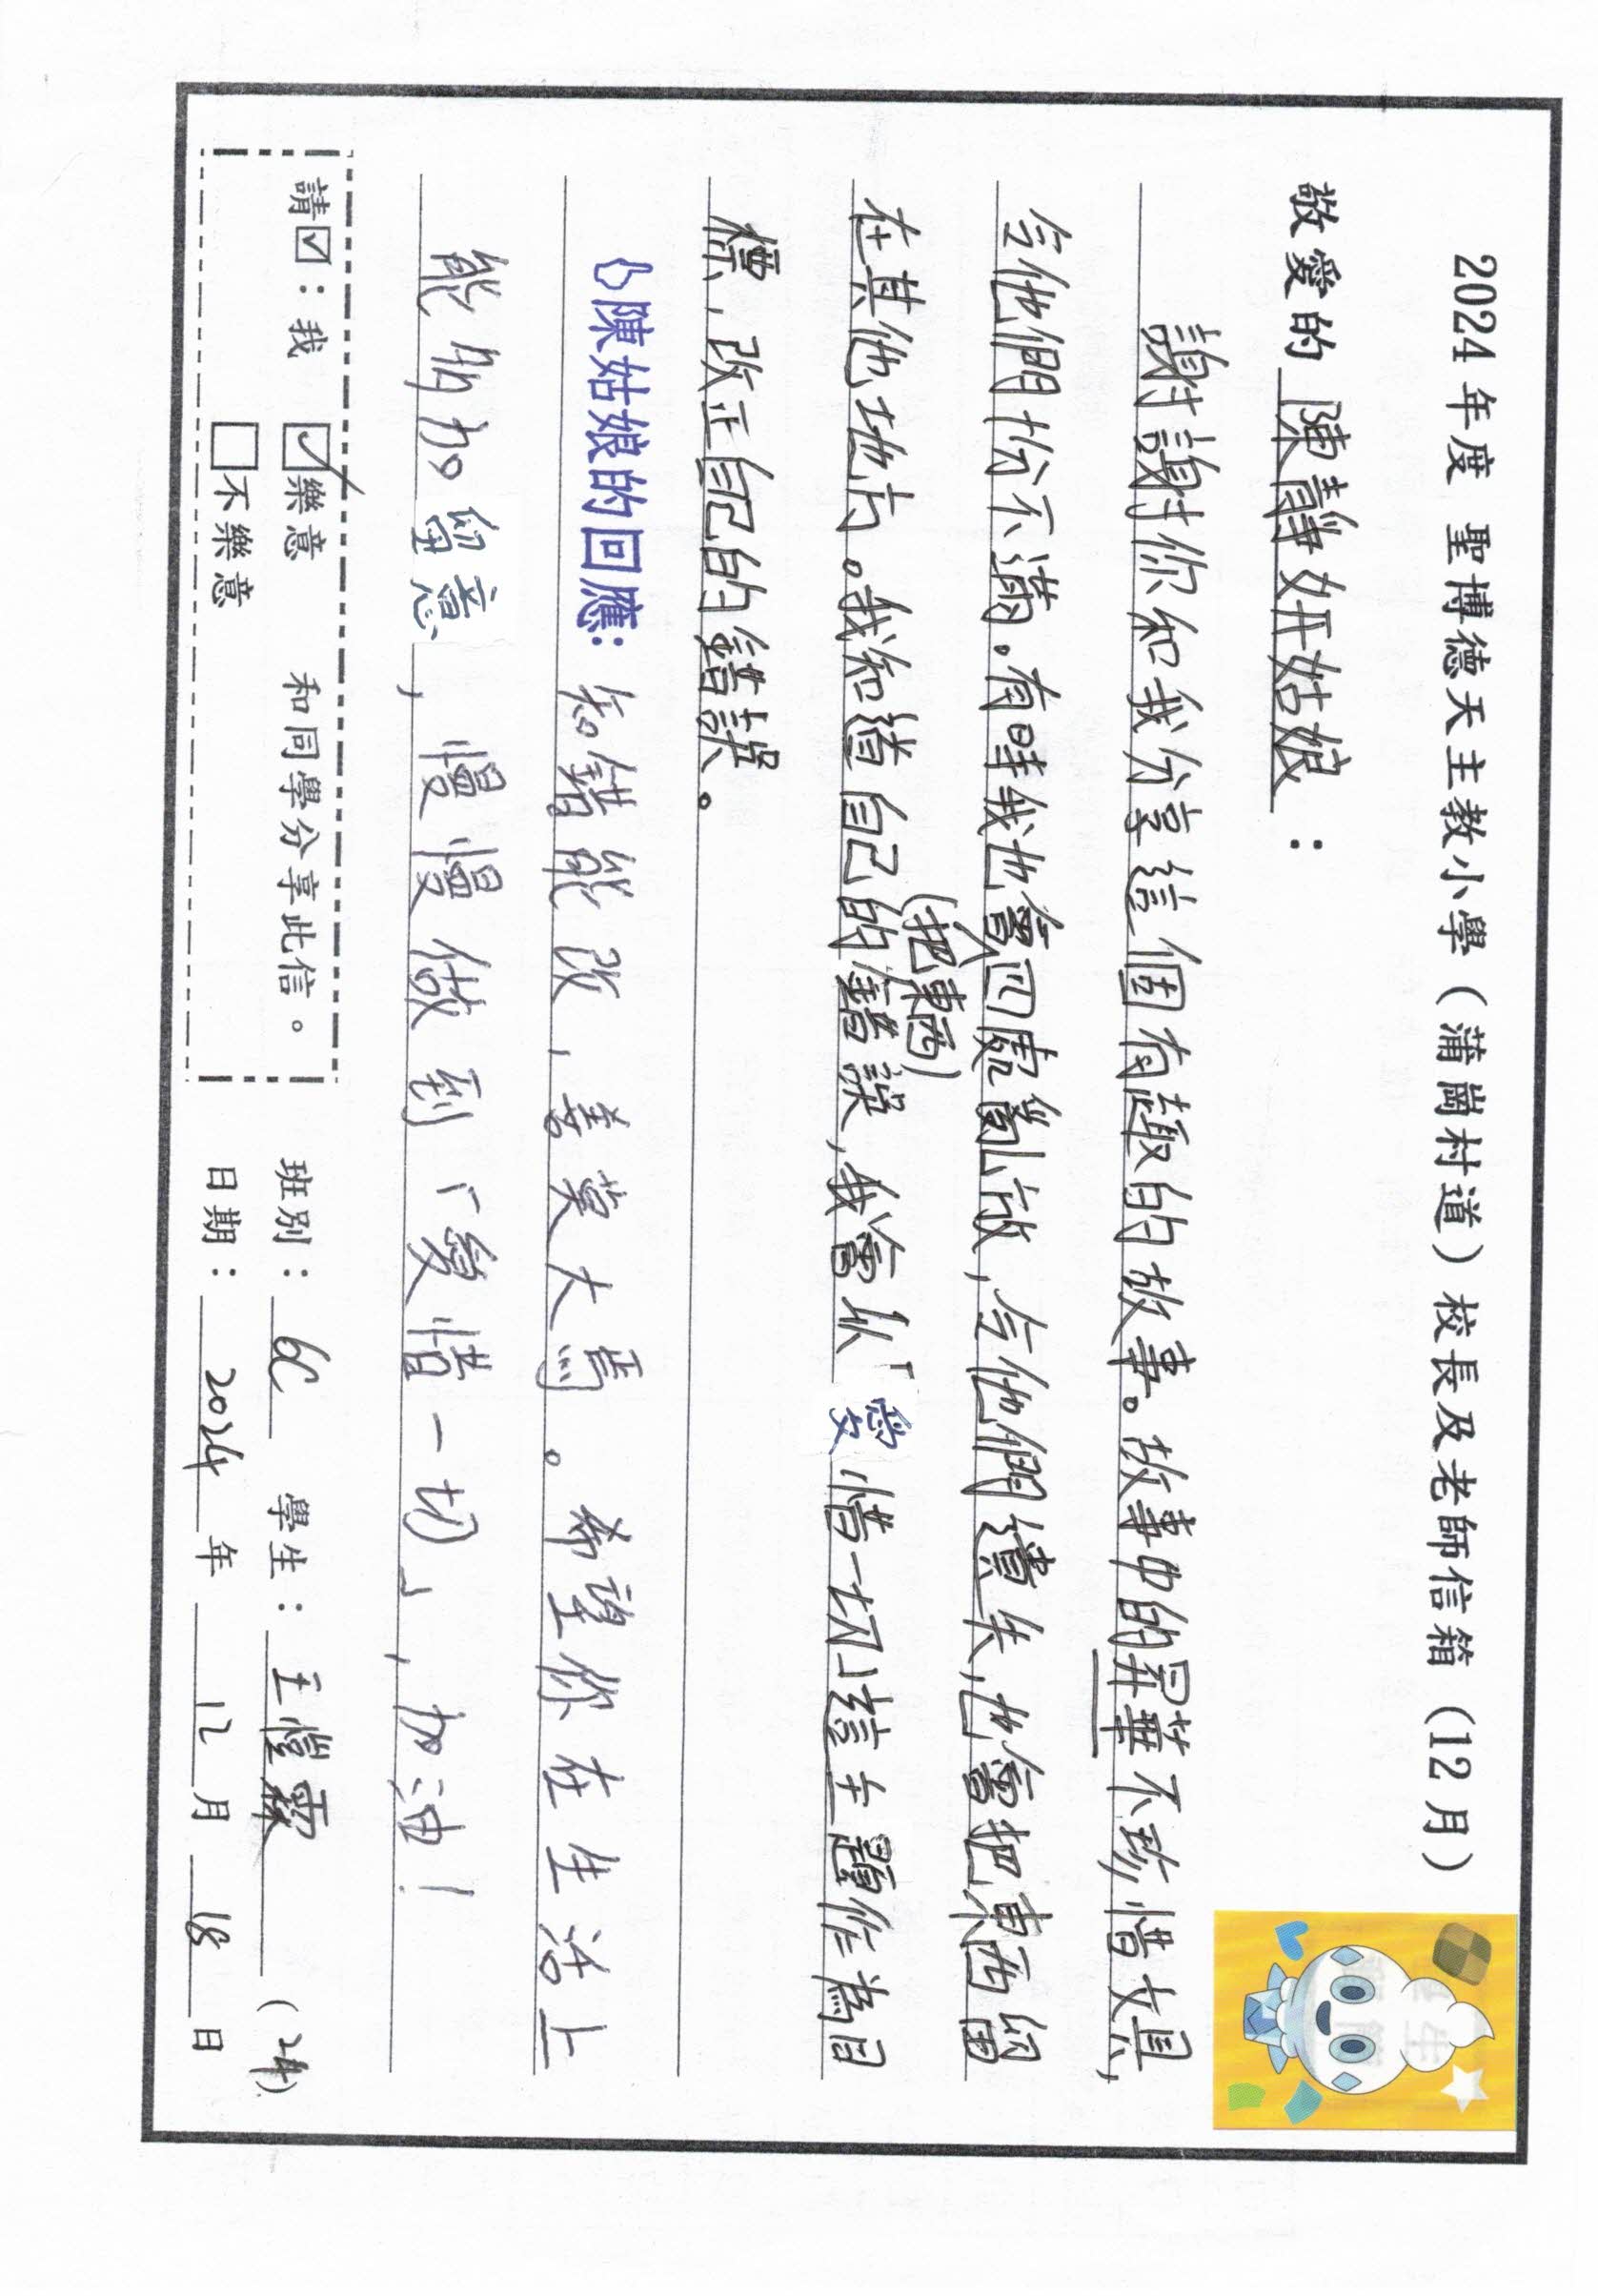 2024 年度 聖博德天主教小學（蒲崗村道）校長及老師信箱（12 月）
敬愛的 陳靜妍姑娘 ：
謝謝你和我分享這個有趣的故事。故事中的昇華不珍惜文具，
令他們十分不滿。有時我也會(把東西)四處亂放，令他們遺失，也會把東西留
在其他地方。我知道自己的錯誤，我會以「愛惜一切」這主題作為目
標，改正自己的錯誤。
陳姑娘的回應：知錯能改，善莫大焉。希望你在生活上
能多加留意，慢慢做到「愛惜一切」，加油！
請☑：我 ☑樂意 和同學分享此信。
□不樂意
班別：6C 學生：王愷霖 (24)
日期：2024 年 12 月 18 日